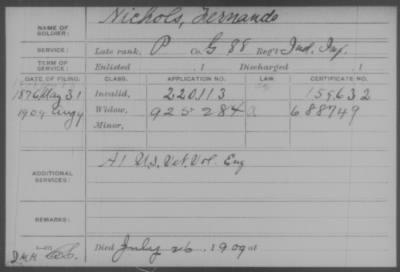 NAME OF SOLDIER: Nichols, Fernando
SERVICE: Late rank, P Co. G 88 Reg't Ind. Inf.
TERM OF SERVICE: Enlisted , 1 Discharged , 1
DATE OF FILING. CLASS. APPLICATION NO. LAW. CERTIFICATE NO.
1876 May 31 Invalid, 220.113 159.632
1909 Aug 4 Widow, 925 284 688749
Minor,
ADDITIONAL SERVICES: A 1 U.S. Vet. Vol. Eng
REMARKS:
Died July 26, 1909, at